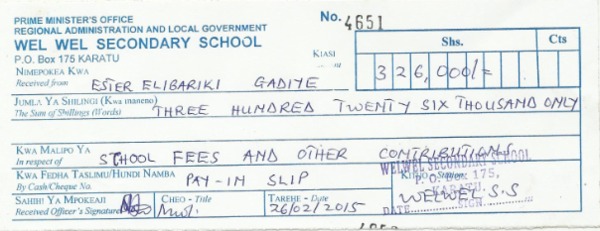 PRIME MINISTER'S OFFICE
REGIONAL ADMINISTRATION AND LOCAL GOVERNMENT
WEL WEL SECONDARY SCHOOL
P.O. Box 175 KARATU
No. 4651
KIASI
Shs. Cts
326,000/=
NIMEPOKEA KWA
Received from ESTER ELIBARIKI GADIYE
JUMLA YA SHILINGI (Kwa maneno)
The Sum of Shillings (Words) THREE HUNDRED TWENTY SIX THOUSAND ONLY
KWA MALIPO YA
In respect of SCHOOL FEES AND OTHER CONTRIBUTIONS
KWA FEDHA TASLIMU/HUNDI NAMBA
By Cash/Cheque No. PAY-IN SLIP
WELWEL SECONDARY SCHOOL
P. O. Box 175,
KARATU.
DATE SIGN.
WELWEL S.S
SAHIHI YA MPOKEAJI
Received Officer's Signature
CHEO - Title
TAREHE - Date
26/02/2015